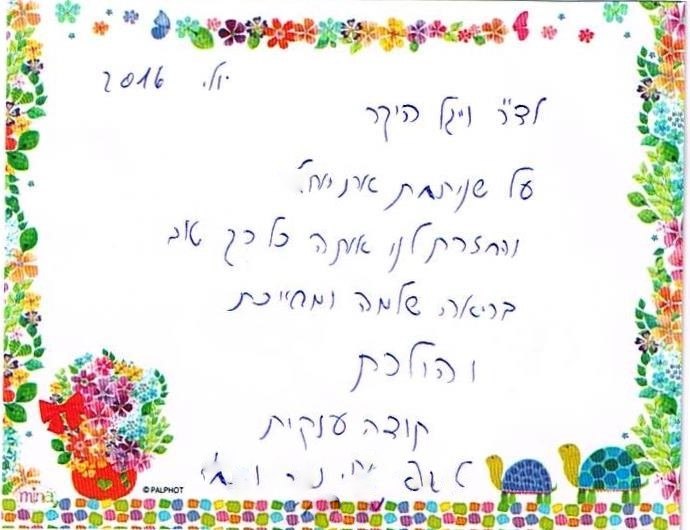 יולי 2016
לד"ר ויגל היקר
על שניתחת את
והחזרת לנו אותה כל כך טוב
בריאה, שלמה ומחייכת
והולכת
תודה ענקית
mina
© PALPHOT